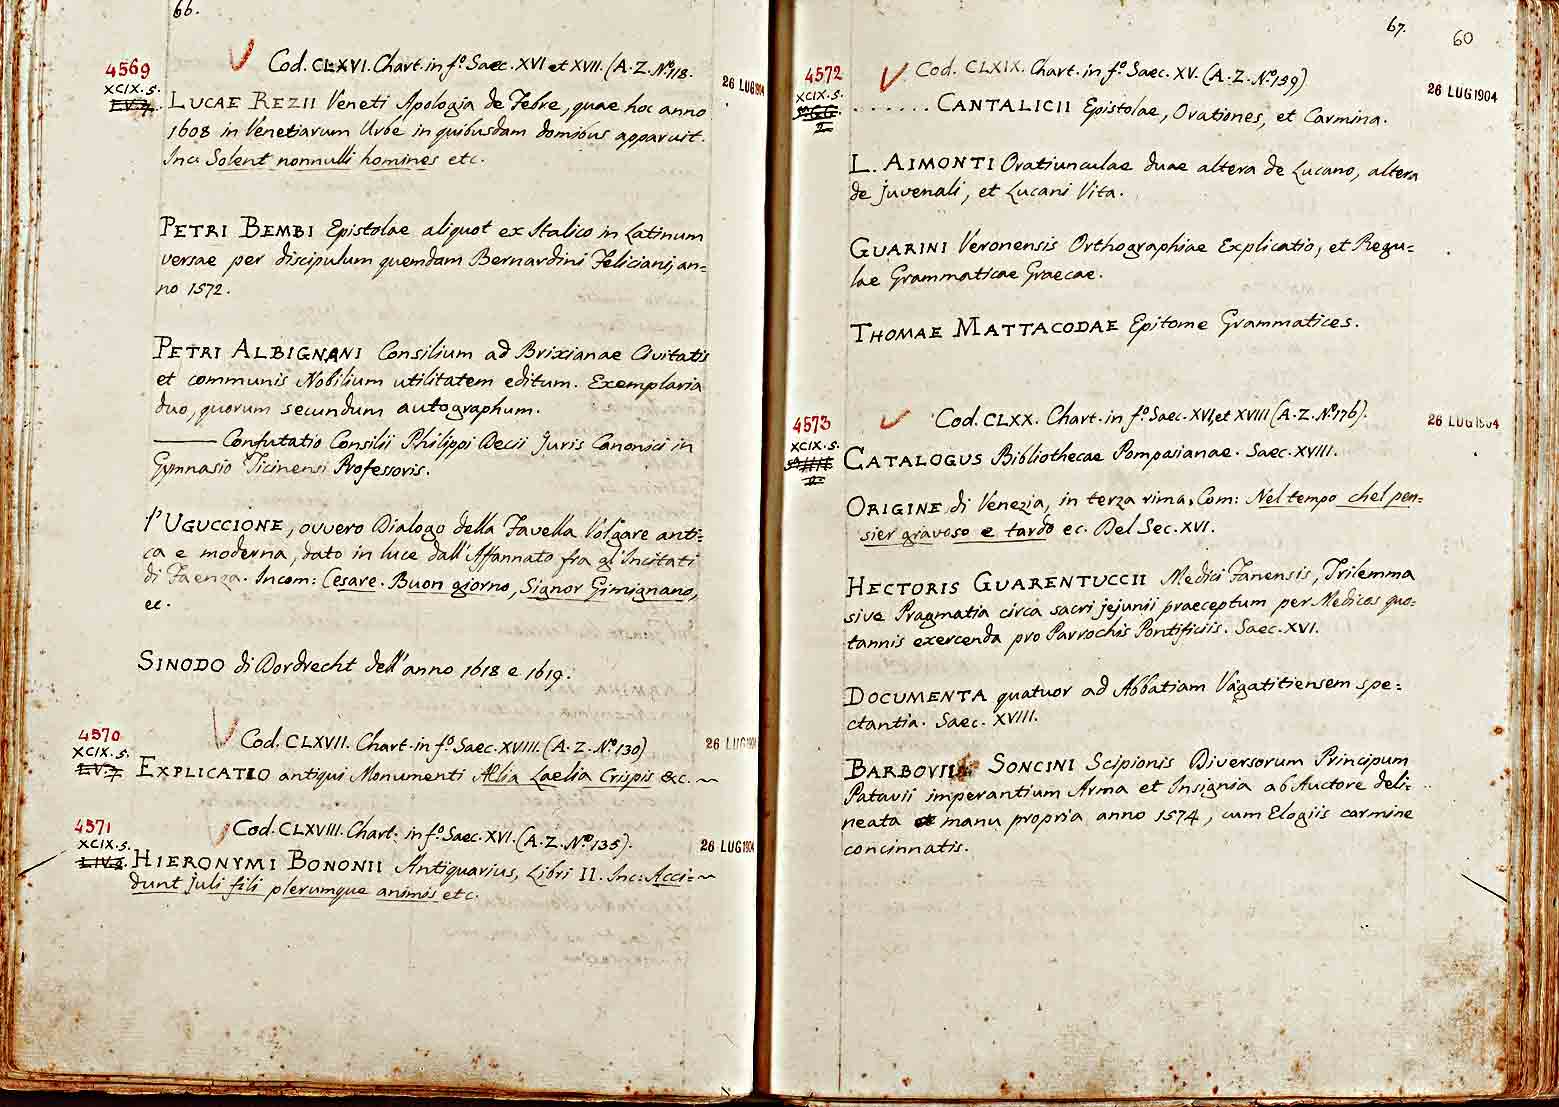 66.
4569
Cod. CLXVI. Chart. in fº. Saec. XVI et XVII. (A. Z. Nº. 118.
XCIX. 5.
26 LUG 1904
LUCAE REZII Veneti Apologia de Febre, quae hoc anno
1608 in Venetiarum Urbe in quibusdam domibus apparuit.
Inc: Solent nonnulli homines etc.
PETRI BEMBI Epistolae aliquot ex Italico in Latinum
versae per discipulum quemdam Bernardini Feliciani, an=
no 1572.
PETRI ALBIGNANI Consilium ad Brixianae Civitatis
et communis Nobilium utilitatem editum. Exemplaria
duo, quorum secundum autographum.
——— Confutatio Consilii Philippi Decii Juris Canonici in
Gymnasio Ticinensi Professoris.
l'UGUCCIONE, ovvero Dialogo della Favella Volgare anti=
ca e moderna, dato in luce dall'Affannato fra gl'Incitati
di Faenza. Incom: Cesare. Buon giorno, Signor Gimignano,
ec.
SINODO di Dordrecht dell'anno 1618 e 1619.
4570
Cod. CLXVII. Chart. in fº. Saec. XVIII. (A. Z. Nº. 130)
26 LUG 1904
XCIX. 5.
EXPLICATIO antiqui Monumenti Ælia Laelia Crispis &c. ~
4571
Cod. CLXVIII. Chart. in fº. Saec. XVI. (A. Z. Nº. 135).
XCIX. 5.
26 LUG 1904
HIERONYMI BONONII Antiquarius, Libri II. Inc: Acci= ~
dunt juli fili plerumque animis etc.
67.
60
4572
Cod. CLXIX. Chart. in fº. Saec. XV. (A. Z. Nº. 159)
XCIX. 5.
26 LUG 1904
....... CANTALICII Epistolae, Orationes, et Carmina.
L. AIMONTI Oratiunculae duae altera de Lucano, altera
de juvenali, et Lucani Vita.
GUARINI Veronensis Orthographiae Explicatio, et Regu=
lae Grammaticae Graecae.
THOMAE MATTACODAE Epitome Grammatices.
4573
Cod. CLXX. Chart. in fº. Saec. XVI, et XVIII (A. Z. Nº. 176).
26 LUG 1904
XCIX. 5.
CATALOGUS Bibliothecae Pomposianae. Saec. XVIII.
ORIGINE di Venezia, in terza rima. Com: Nel tempo chel pen=
sier gravoso e tardo ec. Del Sec. XVI.
HECTORIS GUARENTUCCII Medici Fanensis, Trilemma
sive Pragmatia circa sacri jejunii praeceptum per Medicos quo=
tannis exercenda pro Parrochis Pontificiis. Saec. XVI.
DOCUMENTA quatuor ad Abbatiam Vagatitiensem spe=
ctantia. Saec. XVIII.
BARBOVII SONCINI Scipionis Diversorum Principum
Patavii imperantium Arma et Insignia ab Auctore deli=
neata manu propria anno 1574, cum Elogiis carmine
concinnatis.